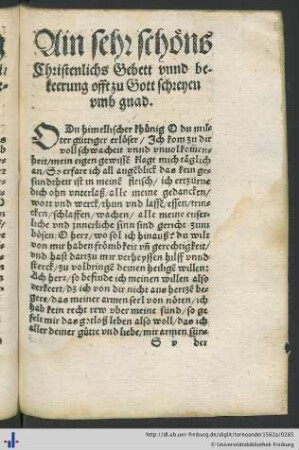 Ain sehr schöns
Christenlichs Gebett vnnd be-
keerung offt zu Gott schreyen
vmb gnad.
O Du himelischer khünig O du mil-
ter güttiger erlöser / Ich kom zu dir
voll schwacheit vnnd vnuolkomen-
heit / mein eigen gewisse klagt mich täglich
an / So erfare ich all augeblick das kein ge-
sundtheit ist in meinē fleisch / ich ertzürne
dich ohn vnterlaß / alle meine gedancken /
wort vnd werck / thun vnd lasse / essen / trin-
cken / schlaffen / wachen / alle meine euser-
liche vnd innerliche sinn sind gericht zum
bösen: O herz / wo sol ich hinauß? du wilt
von mir haben frömkeit vñ gerechtigkeit /
vnd hast dartzu mir verheyssen hilff vnnd
sterck / zu volbringē deinen heiligē willen:
Ach herz / so befinde ich meinen willen also
verkeert / dz ich von dir nicht aus hertzē be-
gere / das meiner armen seel von nöten / ich
hab kein recht rew vber meine sünd / so ge-
felt mir das gotloß leben also woll / das ich
aller deiner gütte vnd liebe / mir armen sün-
S v der
http://dl.ub.uni-freiburg.de/diglit/tornoonder1562a/0265
© Universitätsbibliothek Freiburg